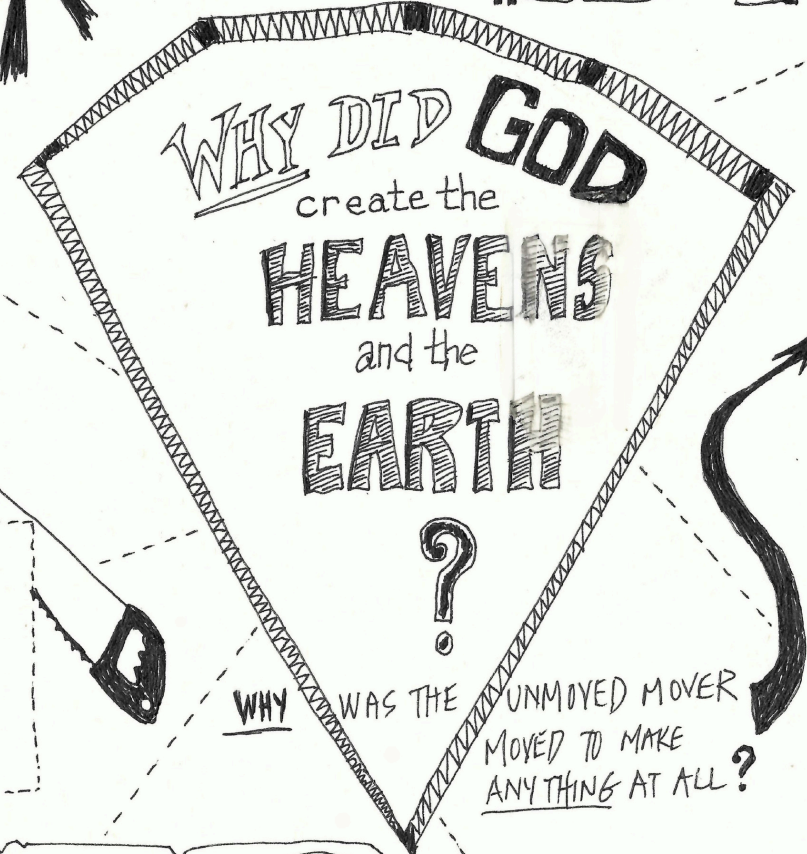 WHY DID GOD
create the
HEAVENS
and the
EARTH
?
WHY WAS THE UNMOVED MOVER
MOVED TO MAKE
ANYTHING AT ALL?